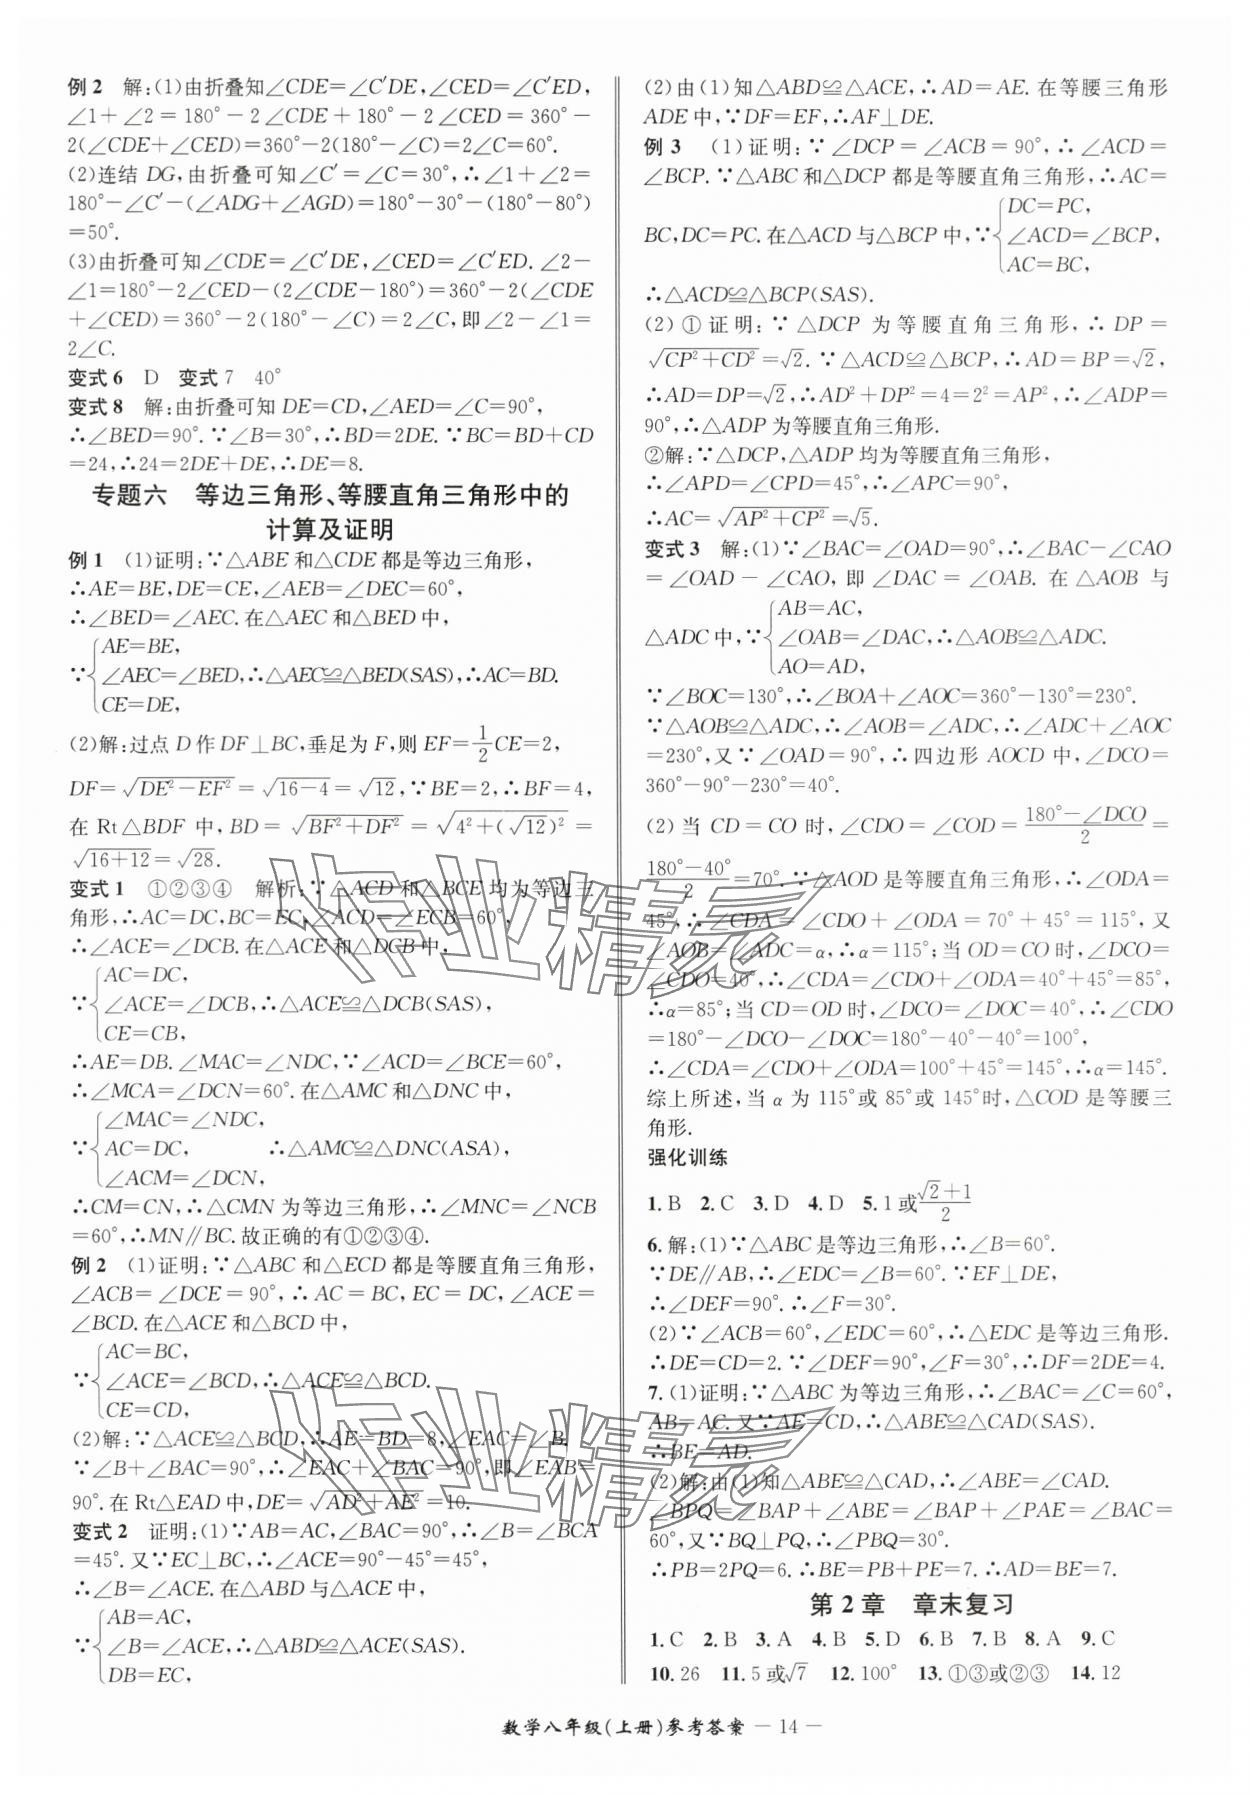 例2 解:(1)由折叠知∠CDE=∠C′DE,∠CED=∠C′ED,
∠1+∠2=180°-2∠CDE+180°-2∠CED=360°-
2(∠CDE+∠CED)=360°-2(180°-∠C)=2∠C=60°.
(2)连结DG,由折叠可知∠C′=∠C=30°,∴∠1+∠2=
180°-∠C′-(∠ADG+∠AGD)=180°-30°-(180°-80°)
=50°.
(3)由折叠可知∠CDE=∠C′DE,∠CED=∠C′ED.∠2-
∠1=180°-2∠CED-(2∠CDE-180°)=360°-2(∠CDE
+∠CED)=360°-2(180°-∠C)=2∠C,即∠2-∠1=
2∠C.
变式6 D 变式7 40°
变式8 解:由折叠可知DE=CD,∠AED=∠C=90°,
∴∠BED=90°.∵∠B=30°,∴BD=2DE.∵BC=BD+CD
=24,∴24=2DE+DE,∴DE=8.
专题六 等边三角形、等腰直角三角形中的
计算及证明
例1 (1)证明:∵△ABE和△CDE都是等边三角形,
∴AE=BE,DE=CE,∠AEB=∠DEC=60°,
∴∠BED=∠AEC.在△AEC和△BED中,
AE=BE,
∵{∠AEC=∠BED,∴△AEC≌△BED(SAS),∴AC=BD.
CE=DE,
(2)解:过点D作DF⊥BC,垂足为F,则EF=1/2CE=2,
DF=√(DE²-EF²)=√(16-4)=√12,∵BE=2,∴BF=4,
在Rt△BDF中,BD=√(BF²+DF²)=√(4²+(√12)²)=
√(16+12)=√28.
变式1 ①②③④ 解析:∵△ACD和△BCE均为等边三
角形,∴AC=DC,BC=EC,∠ACD=∠ECB=60°,
∴∠ACE=∠DCB.在△ACE和△DCB中,
AC=DC,
∵{∠ACE=∠DCB,∴△ACE≌△DCB(SAS),
CE=CB,
∴AE=DB.∠MAC=∠NDC,∵∠ACD=∠BCE=60°,
∴∠MCA=∠DCN=60°.在△AMC和△DNC中,
∠MAC=∠NDC,
∵{AC=DC, ∴△AMC≌△DNC(ASA),
∠ACM=∠DCN,
∴CM=CN,∴△CMN为等边三角形,∴∠MNC=∠NCB
=60°,∴MN∥BC.故正确的有①②③④.
例2 (1)证明:∵△ABC和△ECD都是等腰直角三角形,
∠ACB=∠DCE=90°,∴AC=BC,EC=DC,∠ACE=
∠BCD.在△ACE和△BCD中,
AC=BC,
∵{∠ACE=∠BCD,∴△ACE≌△BCD.
CE=CD,
(2)解:∵△ACE≌△BCD,∴AE=BD=8,∠EAC=∠B.
∵∠B+∠BAC=90°,∴∠EAC+∠BAC=90°,即∠EAB=
90°.在Rt△EAD中,DE=√(AD²+AE²)=10.
变式2 证明:(1)∵AB=AC,∠BAC=90°,∴∠B=∠BCA
=45°.又∵EC⊥BC,∴∠ACE=90°-45°=45°,
∴∠B=∠ACE.在△ABD与△ACE中,
AB=AC,
∵{∠B=∠ACE,∴△ABD≌△ACE(SAS).
DB=EC,
(2)由(1)知△ABD≌△ACE,∴AD=AE.在等腰三角形
ADE中,∵DF=EF,∴AF⊥DE.
例3 (1)证明:∵∠DCP=∠ACB=90°,∴∠ACD=
∠BCP.∵△ABC和△DCP都是等腰直角三角形,∴AC=
DC=PC,
BC,DC=PC.在△ACD与△BCP中,∵{∠ACD=∠BCP,
AC=BC,
∴△ACD≌△BCP(SAS).
(2)①证明:∵△DCP为等腰直角三角形,∴DP=
√(CP²+CD²)=√2.∵△ACD≌△BCP,∴AD=BP=√2,
∴AD=DP=√2,∴AD²+DP²=4=2²=AP²,∴∠ADP=
90°,∴△ADP为等腰直角三角形.
②解:∵△DCP,△ADP均为等腰直角三角形,
∴∠APD=∠CPD=45°,∴∠APC=90°.
∴AC=√(AP²+CP²)=√5.
变式3 解:(1)∵∠BAC=∠OAD=90°,∴∠BAC-∠CAO
=∠OAD-∠CAO,即∠DAC=∠OAB.在△AOB与
AB=AC,
△ADC中,∵{∠OAB=∠DAC,∴△AOB≌△ADC.
AO=AD,
∵∠BOC=130°,∴∠BOA+∠AOC=360°-130°=230°.
∵△AOB≌△ADC,∴∠AOB=∠ADC,∴∠ADC+∠AOC
=230°,又∵∠OAD=90°,∴四边形AOCD中,∠DCO=
360°-90°-230°=40°.
(2)当CD=CO时,∠CDO=∠COD=(180°-∠DCO)/2=
(180°-40°)/2=70°.∵△AOD是等腰直角三角形,∴∠ODA=
45°,∴∠CDA=∠CDO+∠ODA=70°+45°=115°,又
∠AOB=∠ADC=α,∴α=115°;当OD=CO时,∠DCO=
∠CDO=40°,∴∠CDA=∠CDO+∠ODA=40°+45°=85°,
∴α=85°;当CD=OD时,∠DCO=∠DOC=40°,∴∠CDO
=180°-∠DCO-∠DOC=180°-40°-40°=100°,
∴∠CDA=∠CDO+∠ODA=100°+45°=145°,∴α=145°.
综上所述,当α为115°或85°或145°时,△COD是等腰三
角形.
强化训练
1.B 2.C 3.D 4.D 5.1或(√2+1)/2
6.解:(1)∵△ABC是等边三角形,∴∠B=60°.
∵DE∥AB,∴∠EDC=∠B=60°.∵EF⊥DE,
∴∠DEF=90°.∴∠F=30°.
(2)∵∠ACB=60°,∠EDC=60°,∴△EDC是等边三角形.
∴DE=CD=2.∵∠DEF=90°,∠F=30°,∴DF=2DE=4.
7.(1)证明:∵△ABC为等边三角形,∴∠BAC=∠C=60°,
AB=AC.又∵AE=CD,∴△ABE≌△CAD(SAS).
∴BE=AD.
(2)解:由(1)知△ABE≌△CAD,∴∠ABE=∠CAD.
∠BPQ=∠BAP+∠ABE=∠BAP+∠PAE=∠BAC=
60°,又∵BQ⊥PQ,∴∠PBQ=30°.
∴PB=2PQ=6.∴BE=PB+PE=7.∴AD=BE=7.
第2章 章末复习
1.C 2.B 3.A 4.B 5.D 6.B 7.B 8.A 9.C
10.26 11.5或√7 12.100° 13.①③或②③ 14.12
数学八年级(上册)参考答案 — 14 —
作业精灵
作业精灵